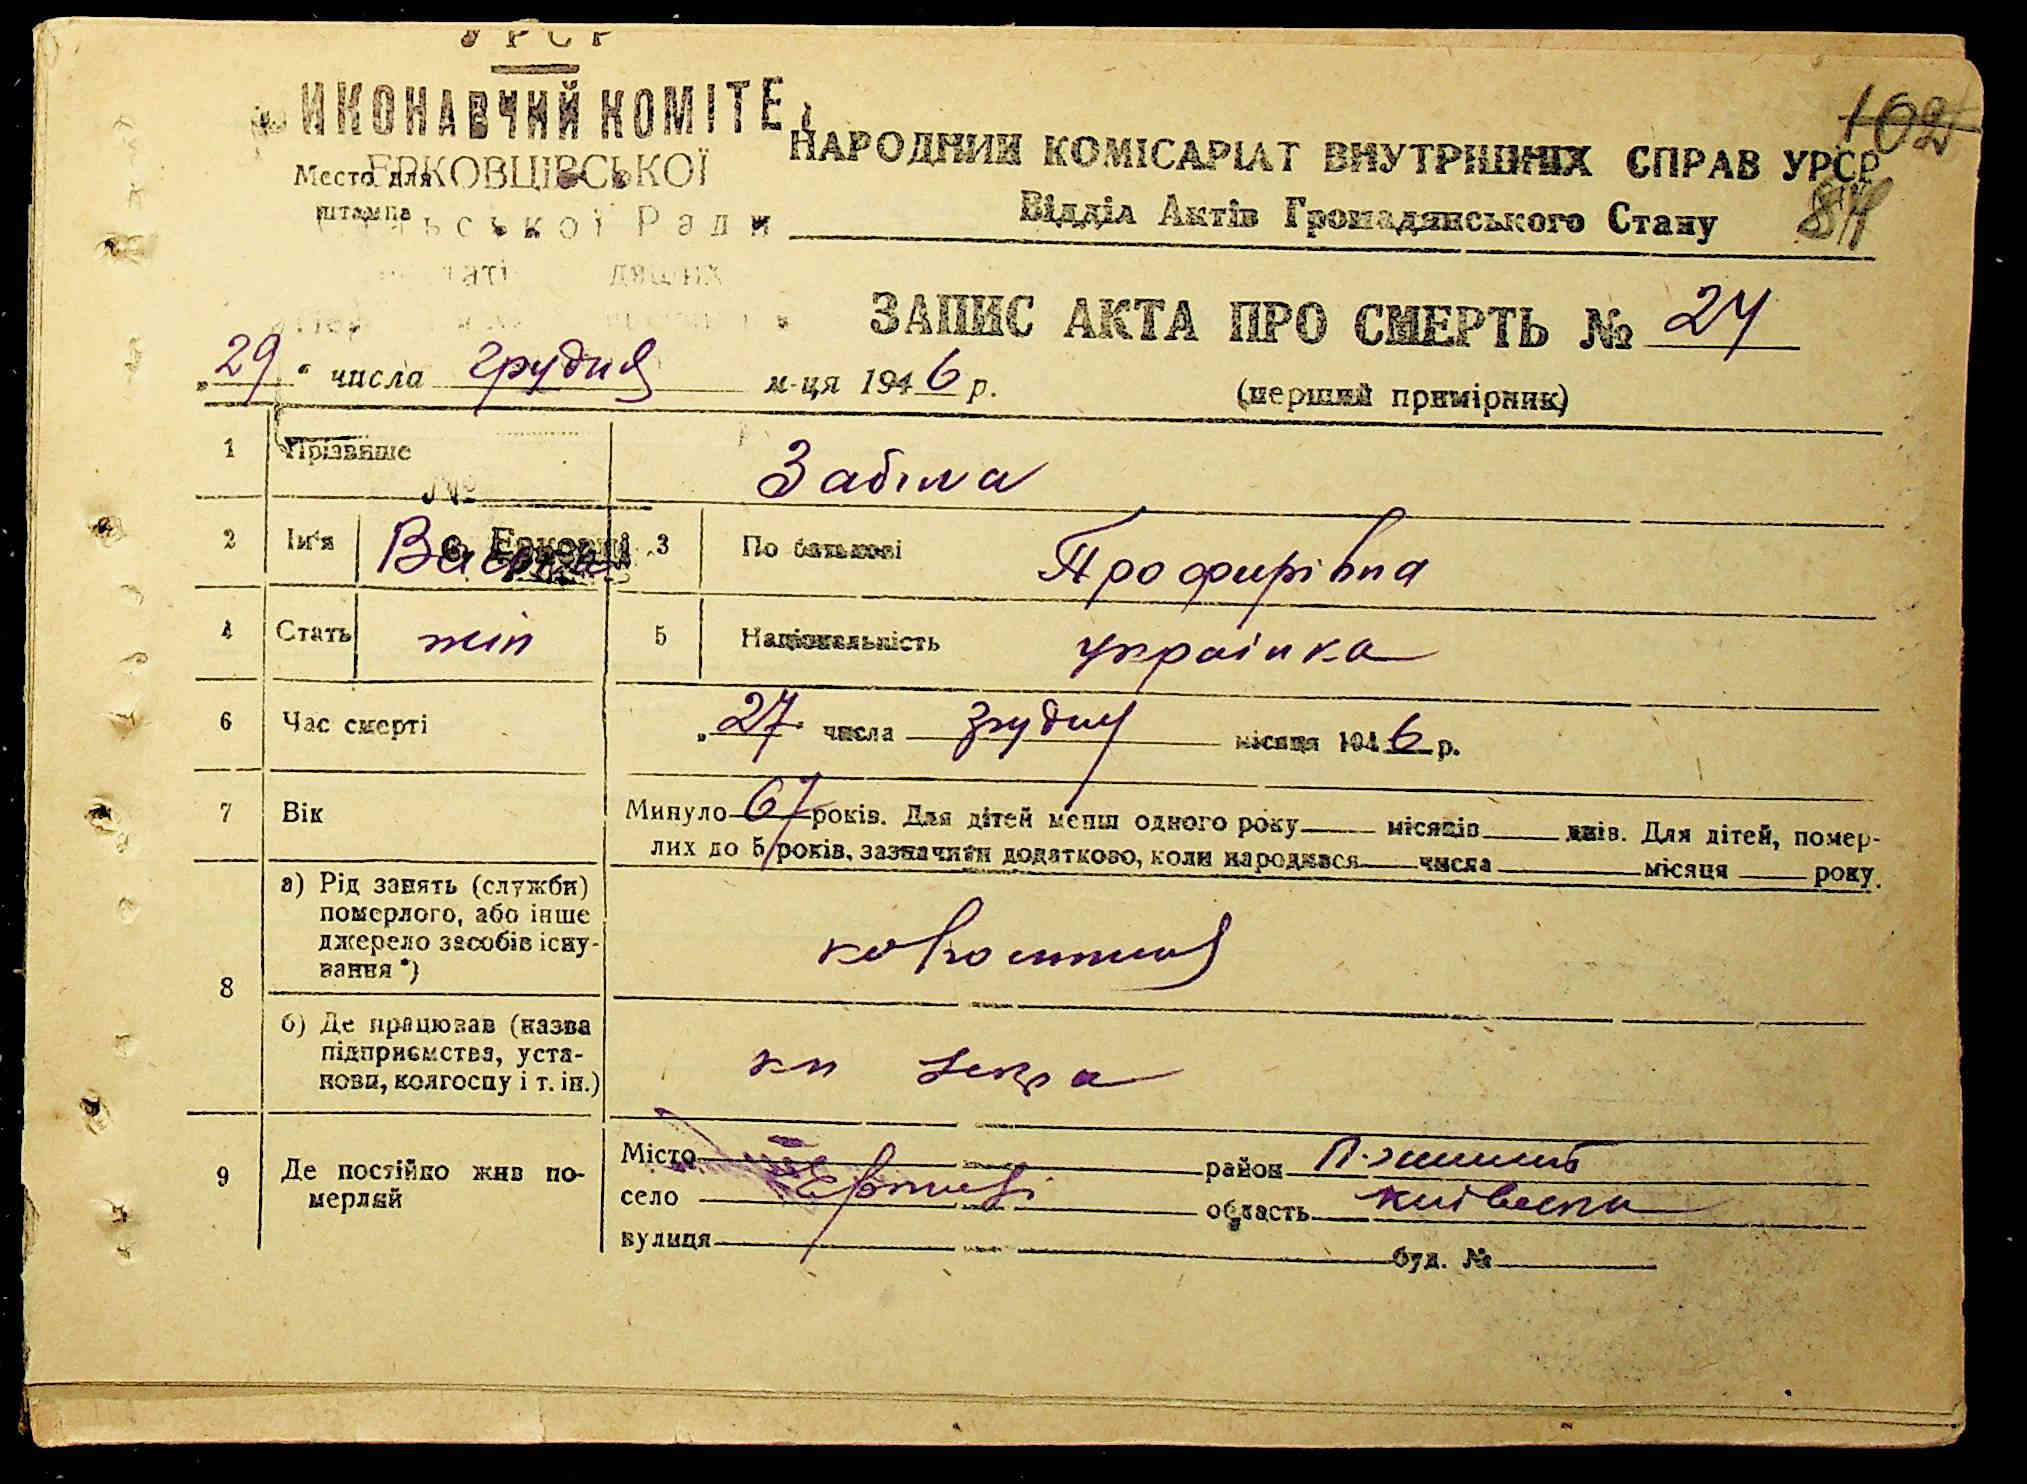 УРСР
ИКОНАВЧИЙ КОМІТЕ
102
НАРОДНИЙ КОМІСАРІАТ ВНУТРІШНІХ СПРАВ УРСР
Место для ЕРКОВЦІВСЬКОЇ
штампа ЬСЬКОЇ Ради
Відділ Актів Громадянського Стану
84
ЗАПИС АКТА ПРО СМЕРТЬ № 24
„29“ числа грудня м-ця 1946 р.
(перший примірник)
1 Прізвище Забіла
№
2 Ім'я с. Ерковці 3 По батькові Профирівна
4 Стать жін 5 Національність українка
6 Час смерті „27“ числа грудня місяця 1946 р.
7 Вік Минуло 67 років. Для дітей менш одного року місяців днів. Для дітей, помер-
лих до 5 років, зазначити додатково, коли народився числа місяця року.
8 а) Рід занять (служби)
померлого, або інше
джерело засобів існу-
вання *)
б) Де працював (назва
підприємства, уста-
нови, колгоспу і т. ін.)
9 Де постійно жив по-
мерлий
Місто район
село Ерковці область київська
вулиця буд. №